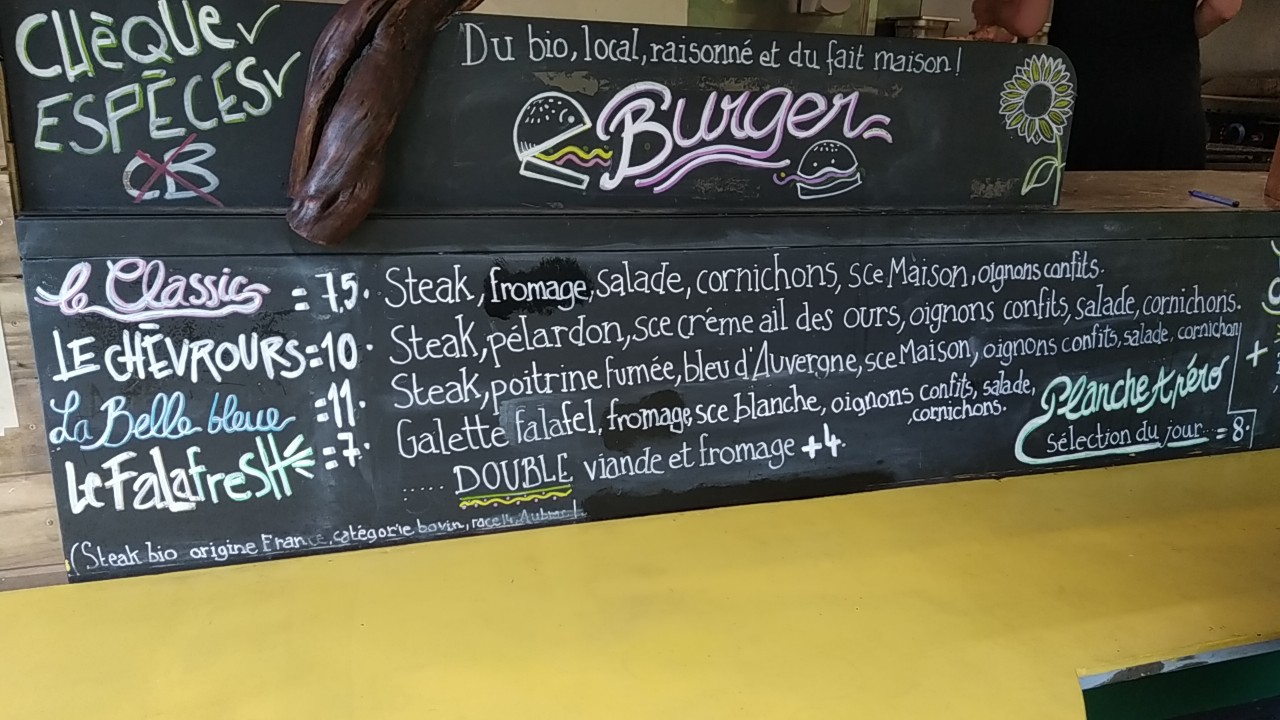 CHÈQUE ✓
ESPÈCES ✓
CB
Du bio, local, raisonné et du fait maison!
Burger
le Classic = 7,5. Steak, fromage, salade, cornichons, sce Maison, oignons confits.
LE CHÈVROURS = 10. Steak, pélardon, sce crème ail des ours, oignons confits, salade, cornichons.
La Belle bleue = 11. Steak, poitrine fumée, bleu d'Auvergne, sce Maison, oignons confits, salade, cornichon
Le Falafresh = 7. Galette falafel, fromage, sce blanche, oignons confits, salade, cornichons.
..... DOUBLE viande et fromage +4.
Planche Apéro
Sélection du jour... = 8.
+
(Steak bio origine France, catégorie bovin, race